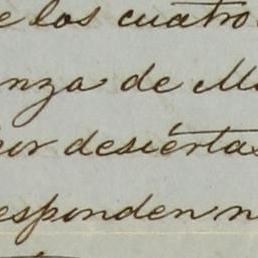 e los cuatro
nza de M
or desiértas
esponden n